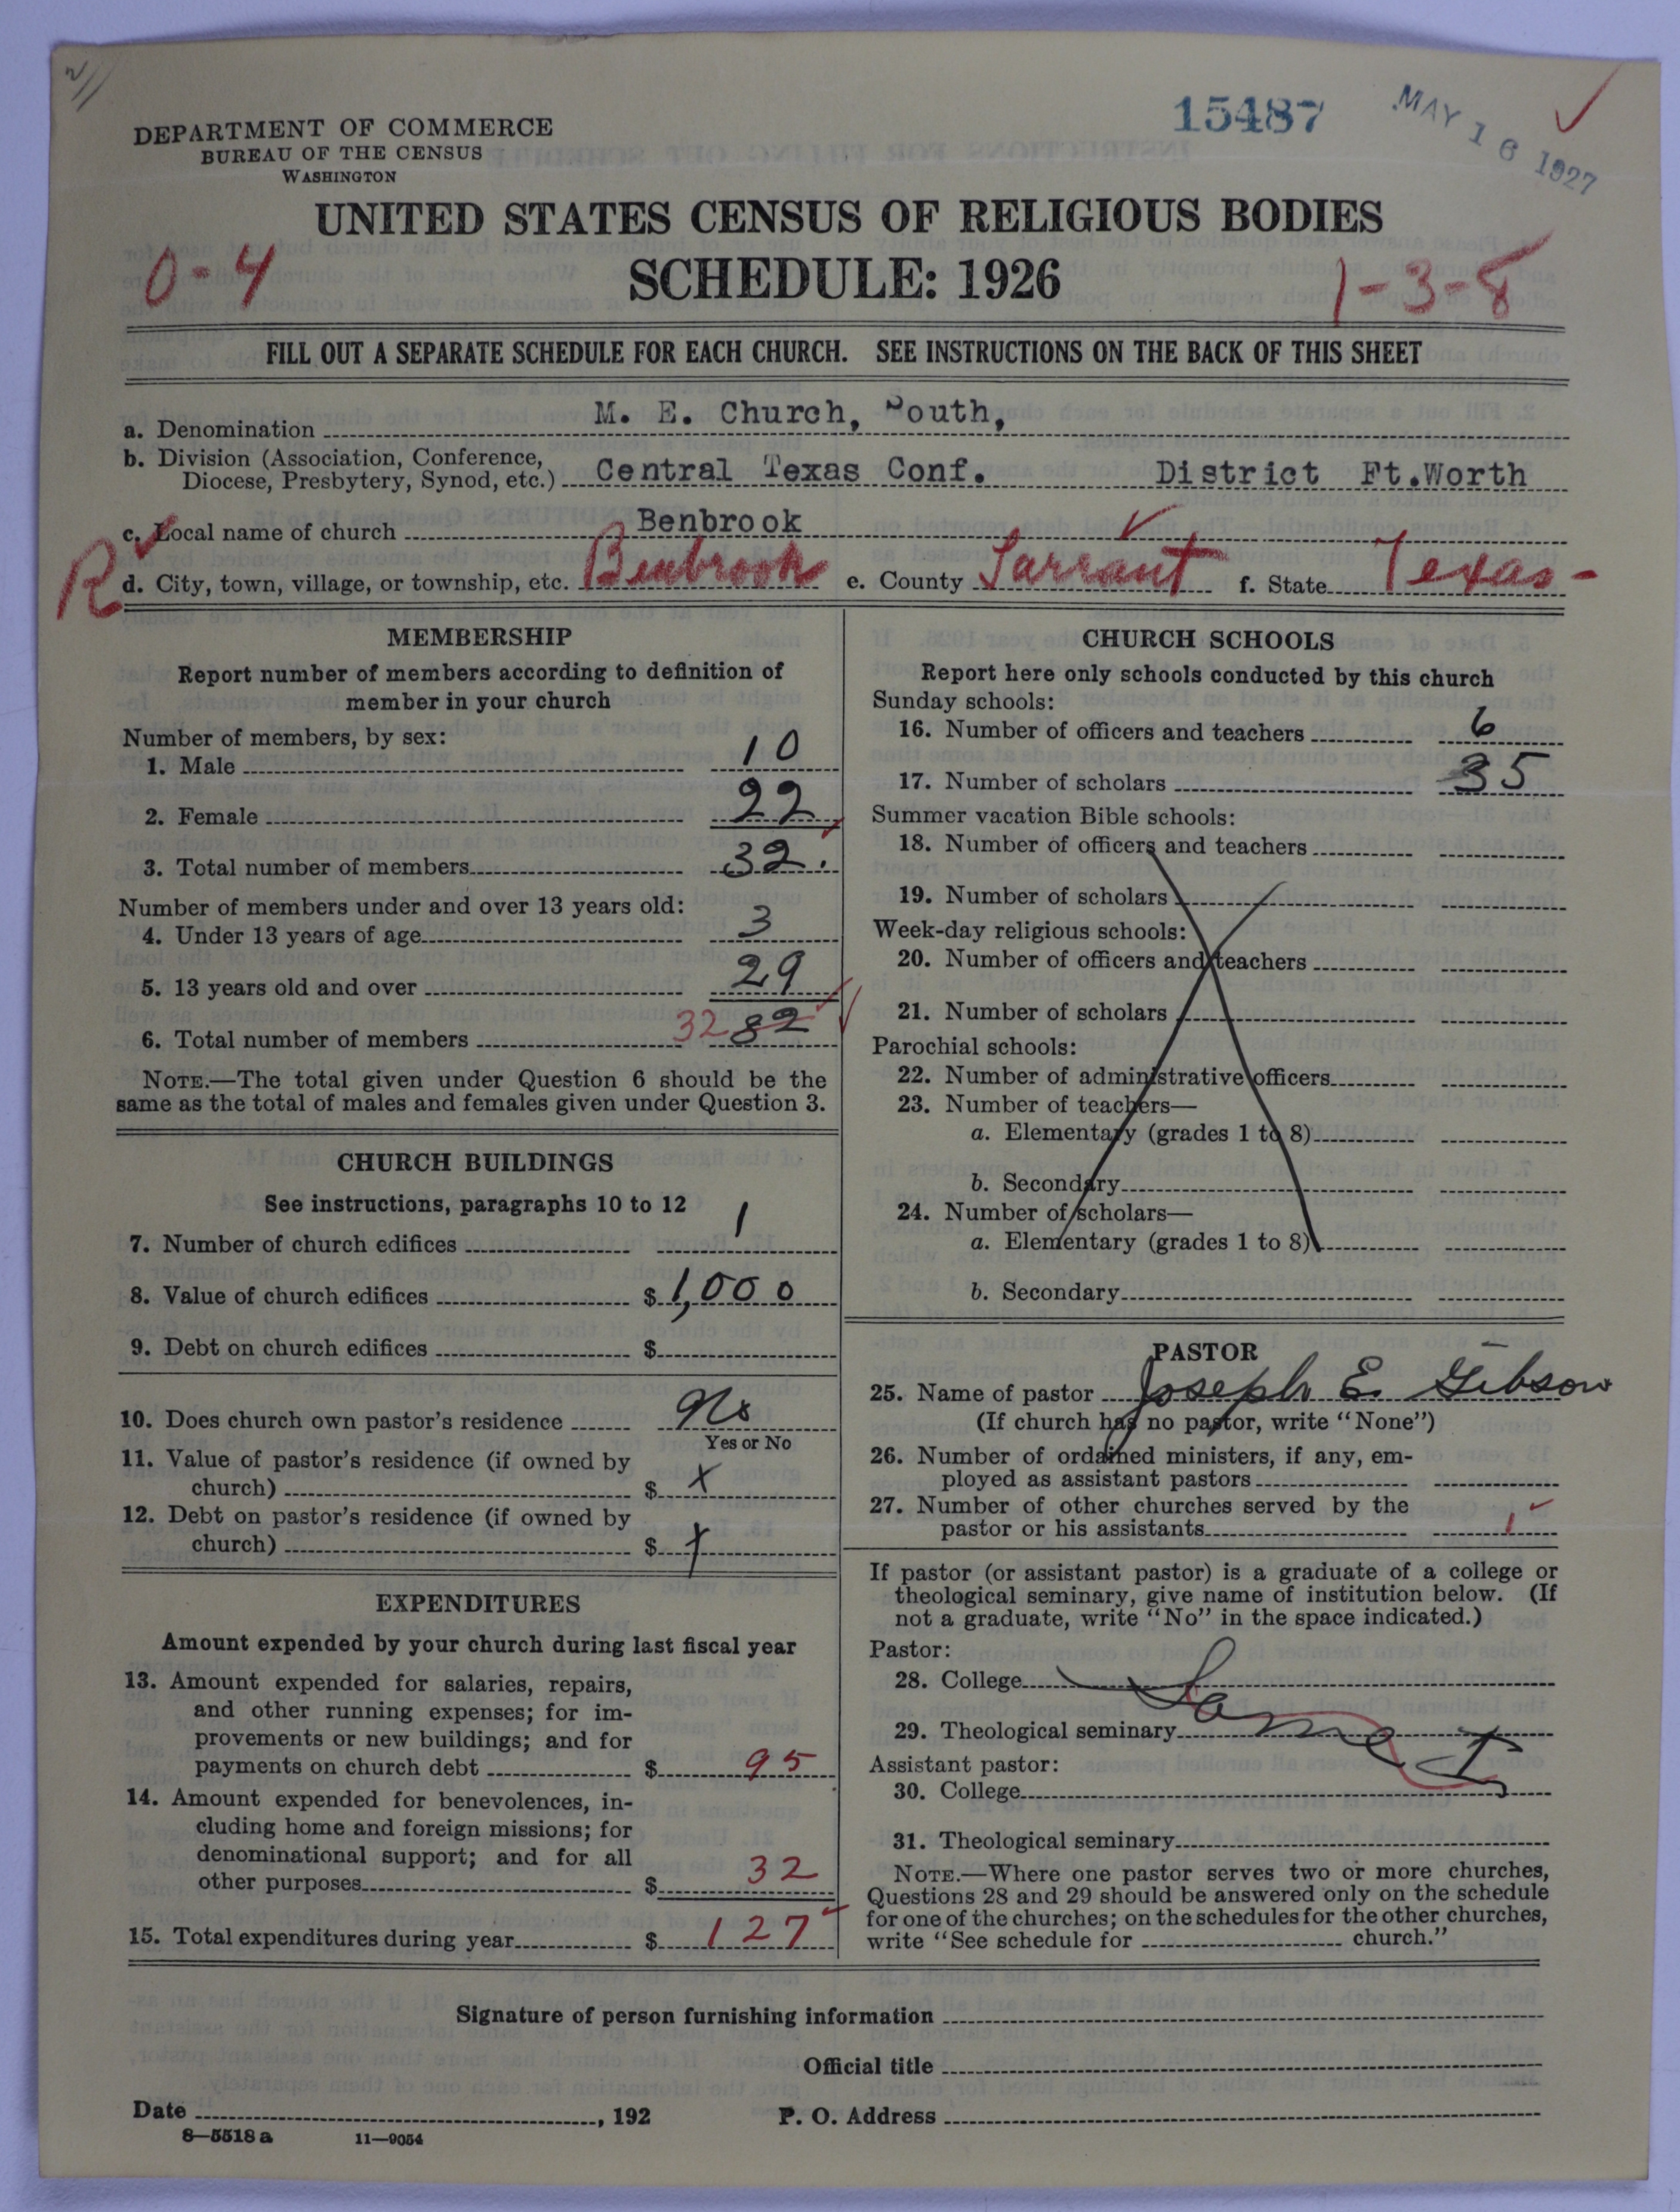 15487
MAY 16 1927
DEPARTMENT OF COMMERCE
BUREAU OF THE CENSUS
WASHINGTON
UNITED STATES CENSUS OF RELIGIOUS BODIES
SCHEDULE: 1926
0-4
1-3-8
FILL OUT A SEPARATE SCHEDULE FOR EACH CHURCH. SEE INSTRUCTIONS ON THE BACK OF THIS SHEET
a. Denomination M. E. Church, South,
b. Division (Association, Conference,
Diocese, Presbytery, Synod, etc.) Central Texas Conf. District Ft.Worth
c. Local name of church Benbrook
R d. City, town, village, or township, etc. Benbrook e. County Tarrant f. State Texas-
MEMBERSHIP
Report number of members according to definition of
member in your church
Number of members, by sex:
1. Male 10
2. Female 22
3. Total number of members 32.
Number of members under and over 13 years old:
4. Under 13 years of age 3
5. 13 years old and over 29
6. Total number of members 32 82
NOTE.—The total given under Question 6 should be the
same as the total of males and females given under Question 3.
CHURCH BUILDINGS
See instructions, paragraphs 10 to 12
7. Number of church edifices 1
8. Value of church edifices $ 1,000
9. Debt on church edifices $
10. Does church own pastor's residence No
Yes or No
11. Value of pastor's residence (if owned by
church) $ x
12. Debt on pastor's residence (if owned by
church) $ x
EXPENDITURES
Amount expended by your church during last fiscal year
13. Amount expended for salaries, repairs,
and other running expenses; for im-
provements or new buildings; and for
payments on church debt $ 95
14. Amount expended for benevolences, in-
cluding home and foreign missions; for
denominational support; and for all
other purposes $ 32
15. Total expenditures during year $ 127
CHURCH SCHOOLS
Report here only schools conducted by this church
Sunday schools:
16. Number of officers and teachers 6
17. Number of scholars 35
Summer vacation Bible schools:
18. Number of officers and teachers
19. Number of scholars
Week-day religious schools:
20. Number of officers and teachers
21. Number of scholars
Parochial schools:
22. Number of administrative officers
23. Number of teachers—
a. Elementary (grades 1 to 8)
b. Secondary
24. Number of scholars—
a. Elementary (grades 1 to 8)
b. Secondary
PASTOR
25. Name of pastor Joseph E. Gibson
(If church has no pastor, write "None")
26. Number of ordained ministers, if any, em-
ployed as assistant pastors
27. Number of other churches served by the
pastor or his assistants 1
If pastor (or assistant pastor) is a graduate of a college or
theological seminary, give name of institution below. (If
not a graduate, write "No" in the space indicated.)
Pastor:
28. College
29. Theological seminary
Assistant pastor:
30. College
31. Theological seminary
NOTE.—Where one pastor serves two or more churches,
Questions 28 and 29 should be answered only on the schedule
for one of the churches; on the schedules for the other churches,
write "See schedule for church."
Signature of person furnishing information
Official title
Date , 192 P. O. Address
8—5518 a 11—9054